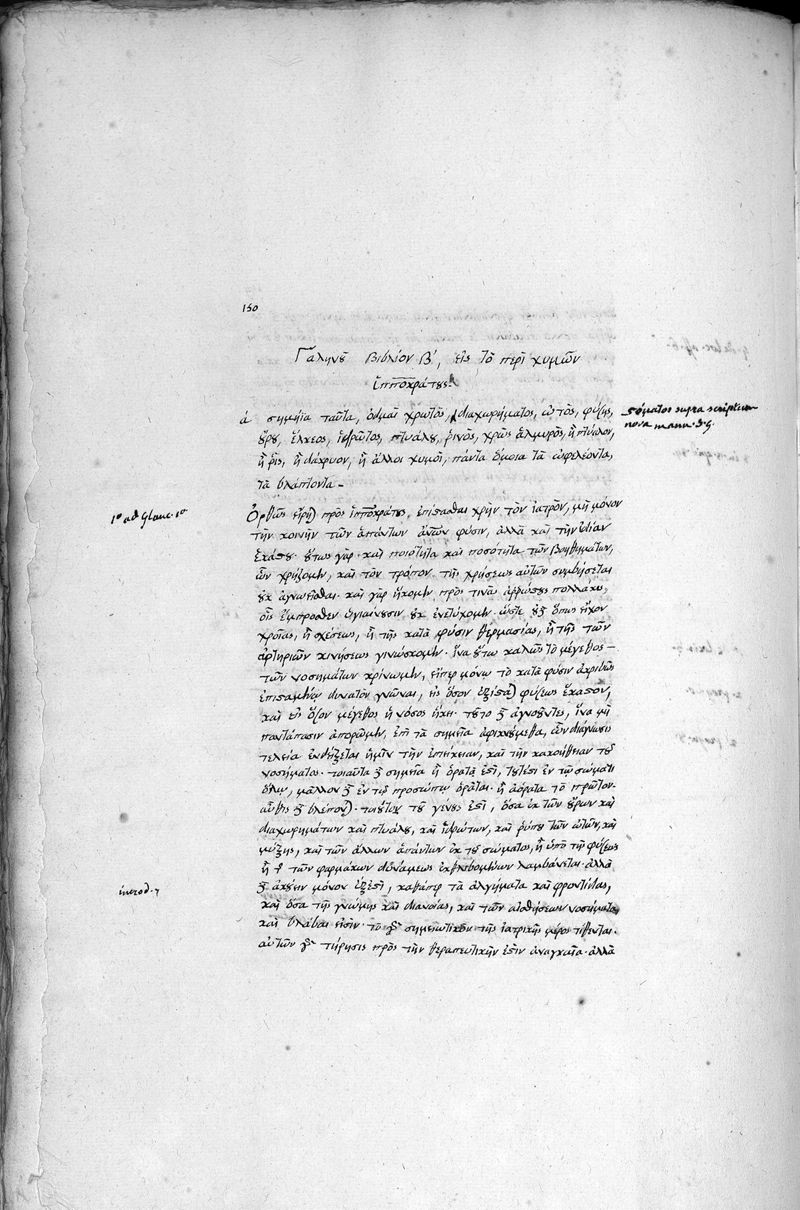 150
Γαληνοῦ βιβλίον β΄, εἰς τὸ περὶ χυμῶν
ἱπποκράτους.
ἁ σημεῖα ταῦτα, ὀδμαὶ χρωτὸς, διαχωρήματος, ὠτὸς, φύσης, στόματος supra scriptum
nova manu
οὔρου, ἕλκεος, ἱδρῶτος, πτυάλου, ῥινὸς, χρὼς ἁλμυρὸς, ἢ πτύαλον,
ἢ ῥὶς, ἢ δάκρυον, ἢ ἄλλοι χυμοὶ, πάντα ὅμοια τὰ ὠφελέοντα,
τὰ βλάπτοντα
1º ad Glauc. 1º
Ὀρθῶς εἴρη) πρὸς ἱπποκράτους, ἐπίστασθαι χρὴν τὸν ἰατρὸν, μὴ μόνον
τὴν κοινὴν τῶν ἁπάντων ἀνῶν φύσιν, ἀλλὰ καὶ τὴν ἰδίαν
ἑκάστου. οὕτως γὰρ καὶ ποιότητα καὶ ποσότητα τῶν βοηθημάτων,
ὧν χρῄζομεν, καὶ τὸν τρόπον τῆς χρήσεως αὐτῶν συμβήσεται
οὐκ ἀγνοεῖσθαι. καὶ γὰρ ἥκομεν πρός τινας ἀρρώστους πολλάκις,
οἷς ἔμπροσθεν ὑγιαίνουσιν οὐκ ἐνετύχομεν. ὥστε οὐδ ὅπως εἶχον
χροίας, ἢ σχέσεως, ἢ τῆς κατὰ φύσιν θερμασίας, ἢ τῆς τῶν
ἀρτηριῶν κινήσεως γινώσκομεν. ἵνα οὕτω καλῶς τὸ μέγεθος
τῶν νοσημάτων κρίνωμεν, εἴπερ μόνῳ τὸ κατὰ φύσιν ἀκριβῶς
ἐπισταμένῳ δυνατὸν γνῶναι, εἰς ὅσον ἐξίστα) φύσεως ἕκαστον,
καὶ εἰς ὅσον μέγεθος ἡ νόσος ἥκει. τοῦτο δὲ ἀγνοοῦντες, ἵνα μὴ
παντάπασιν ἀπορῶμεν, ἐπὶ τὰ σημεῖα ἀφικνούμεθα, ὧν διάγνωσις
τελεία ἐνδείξεται ἡμῖν τὴν ἐπιείκειαν, καὶ τὴν κακοήθειαν τοῦ
νοσήματος. τοιαῦτα δὲ σημεῖα ἢ ὁρατά ἐστι, τουτέστι ἐν τῷ σώματι
ὅλῳ, μᾶλλον δὲ ἐν τῷ προσώπῳ ὁρᾶται. ἢ ἀόρατα τὸ πρῶτον.
αὖθις δὲ βλέπον). τούτου τοῦ γένους ἐστὶ, ὅσα ἐκ τῶν οὔρων καὶ
διαχωρημάτων καὶ πτυάλου, καὶ ἱδρώτων, καὶ ῥύπου τῶν ὤτων, καὶ
μύξης, καὶ τῶν ἄλλων ἁπάντων ἐκ τοῦ σώματος, ἢ ὑπὸ τῆς φύσεως
ἢ τ τῶν φαρμάκων δυνάμεως ἐκθλιβομένων λαμβάνεται. ἀλλὰ
introd. 7
δὲ ἀκούειν μόνον ἐξέστι, καθάπερ τὰ ἀλγήματα καὶ φροντίδας,
καὶ ὅσα τῆς γνώμης καὶ διανοίας, καὶ τῶν αἰσθήσεων νοσήματα,
καὶ βλάβαι εἰσίν. τὸ γὰρ σημειωτικὸν τῆς ἰατρικῆς μέρος τίθενται.
αὐτῶν γὰρ τήρησις πρὸς τὴν θεραπευτικήν ἐστιν ἀναγκαῖα. ἀλλὰ